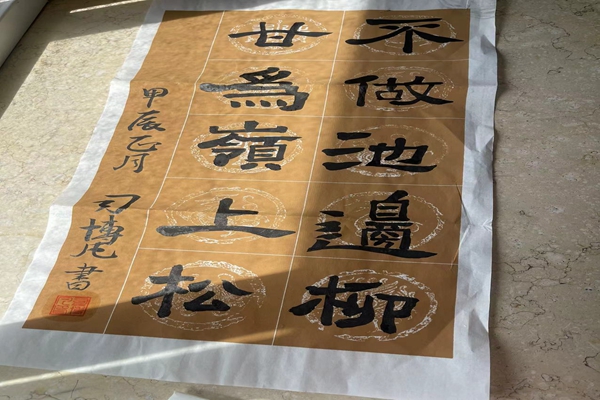 不做池邊柳
甘為嶺上松
甲辰正月 司博書